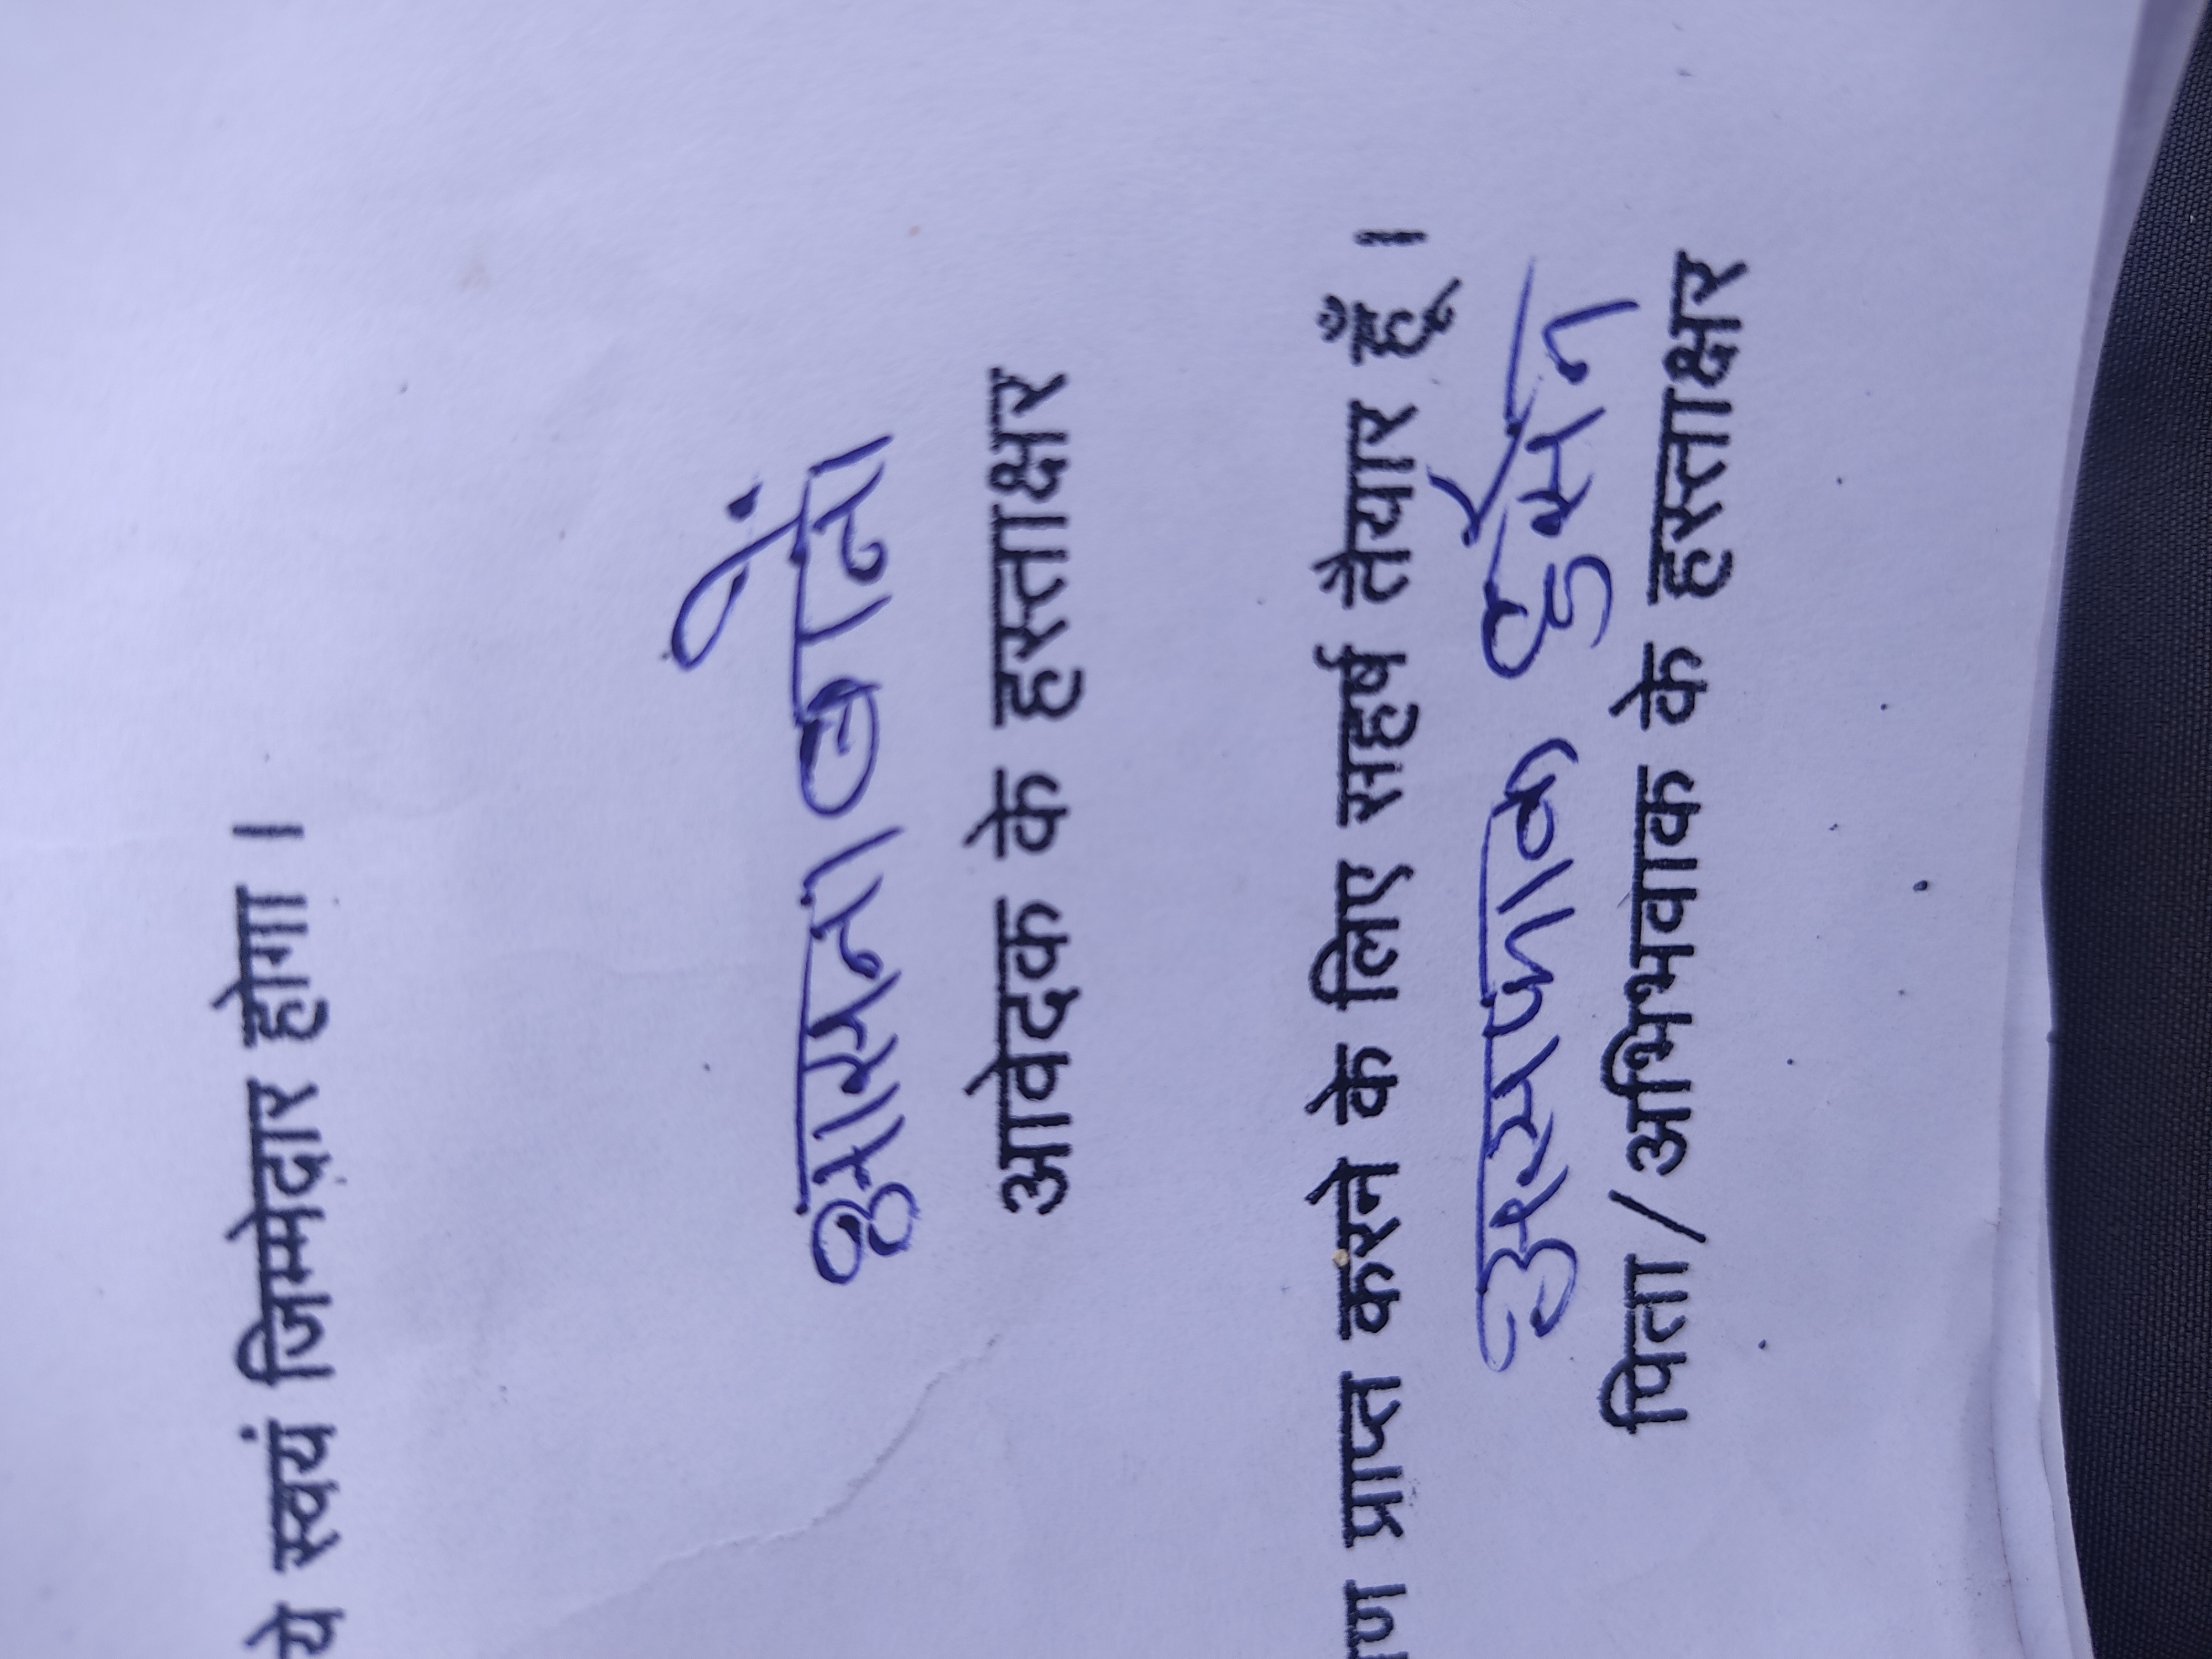 ये स्वयं जिम्मेदार होगा ।
आसमा खातों
आवेदक के हस्ताक्षर
ण प्राप्त करने के लिए सहर्ष तैयार हूँ ।
पिता / अभिभवाक के हस्ताक्षर